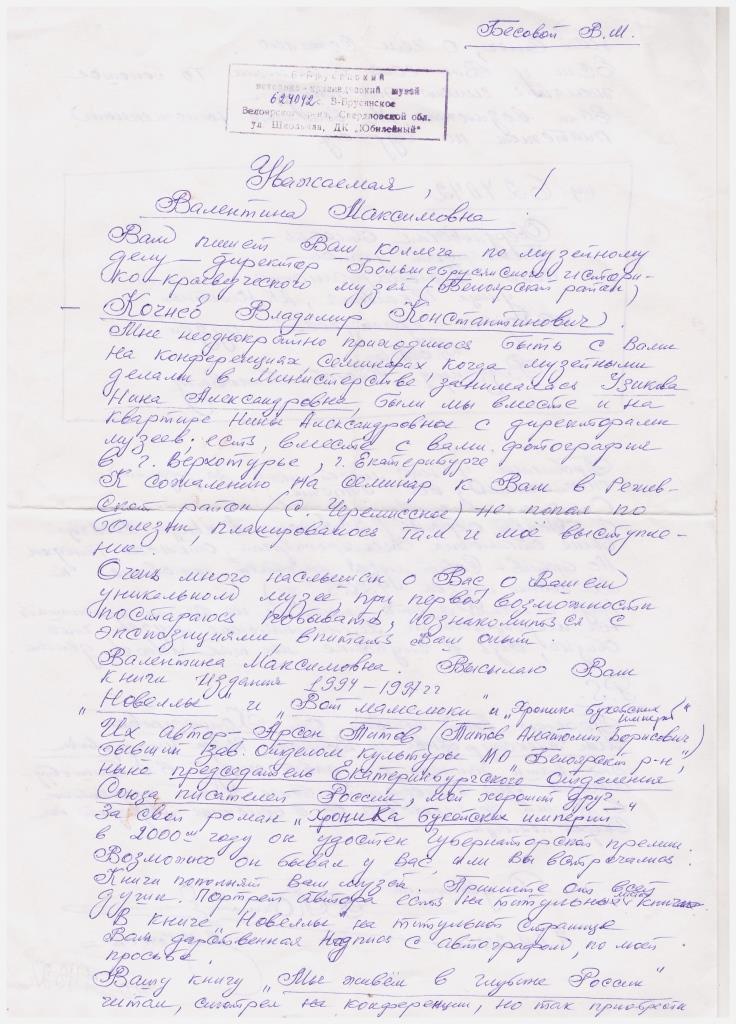 Бесовой В.М.
Б-Брусянский
историко-краеведческий музей
624042 с. Б-Брусянское
Белоярского р-на, Свердловской обл.
ул Школьная, ДК „Юбилейный"
Уважаемая, !
Валентина Максимовна.
Вам пишет Ваш коллега по музейному
делу — директор Большебрусянского истори-
ко-краеведческого музея (Белоярский район)
Кочнев Владимир Константинович).
Мне неоднократно приходилось быть с Вами
на конференциях семинарах когда музейными
делами в Министерстве занималась Узикова
Нина Александровна, были мы вместе и на
квартире Нины Александровное с директорами
музеев; есть, вместе с вами фотографие
в г. Верхотурье, г. Екатеринбурге
К сожалению на семинар к Вам в Режев-
ской район (с. Черемисское) не попал по
болезни, планировалось там и моё выступле-
ние.
Очень много наслышан о Вас, о Вашем
уникальном музее, при первой возможности
постараюсь побывать, познакомиться с
экспозициями, впитать Ваш опыт.
Валентина Максимовна. Высылаю Вам
книги издания 1994-1997 гг
„Новеллы" и „Вот мамелюки" и „Хроника букейских империй"
Их автор - Арсен Титов (Титов Анатолий Борисович)
бывший Зав. отделом культуры МО „Белоярский р-н",
ныне председатель Екатеринбургского отделения
Союза писателей России, мой хороший друг.
За свой роман „Хроника букейских империй"
в 2000м году он удостоен Губернаторской премии.
Возможно он бывал у Вас, или Вы встречались.
Книги пополнят Ваш музей. Примите от всей
души. Портрет автора есть на титульной книги.
В книге „Новеллы" на титульной странице
Вам дарственная надпись с автографом, по моей
просьбе.
Вашу книгу „Мы живём в глубине России"
читал, смотрел на конференции, но так приобрести